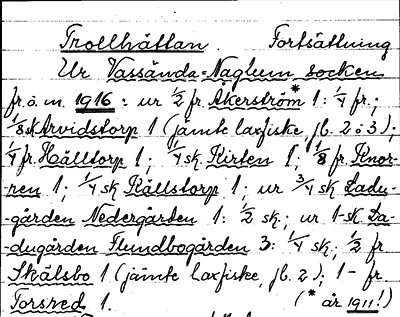 Trollhättan. Fortsättning
Ur Vassända=Naglum socken
fr.o.m. 1916: ur ½ fr. Åkerström* 1: ¼ fr.;
⅛ sk Arvidstorp 1 (jämte laxfiske, jb. 2 o 3);
¼ fr. Hälltorp 1; ¼ sk. Hirten 1; ⅛ fr. Knor-
ren 1; ¼ sk Källstorp 1; ur ¾ sk Ladu-
-gården Nedergården 1: ½ sk; ur 1-sk La-
-dugården Flundbogården 3: ¼ sk; ½ fr
Skälsbo 1 (jämte laxfiske, jb. 2); 1- fr.
Torsred 1. (* år 1911!)